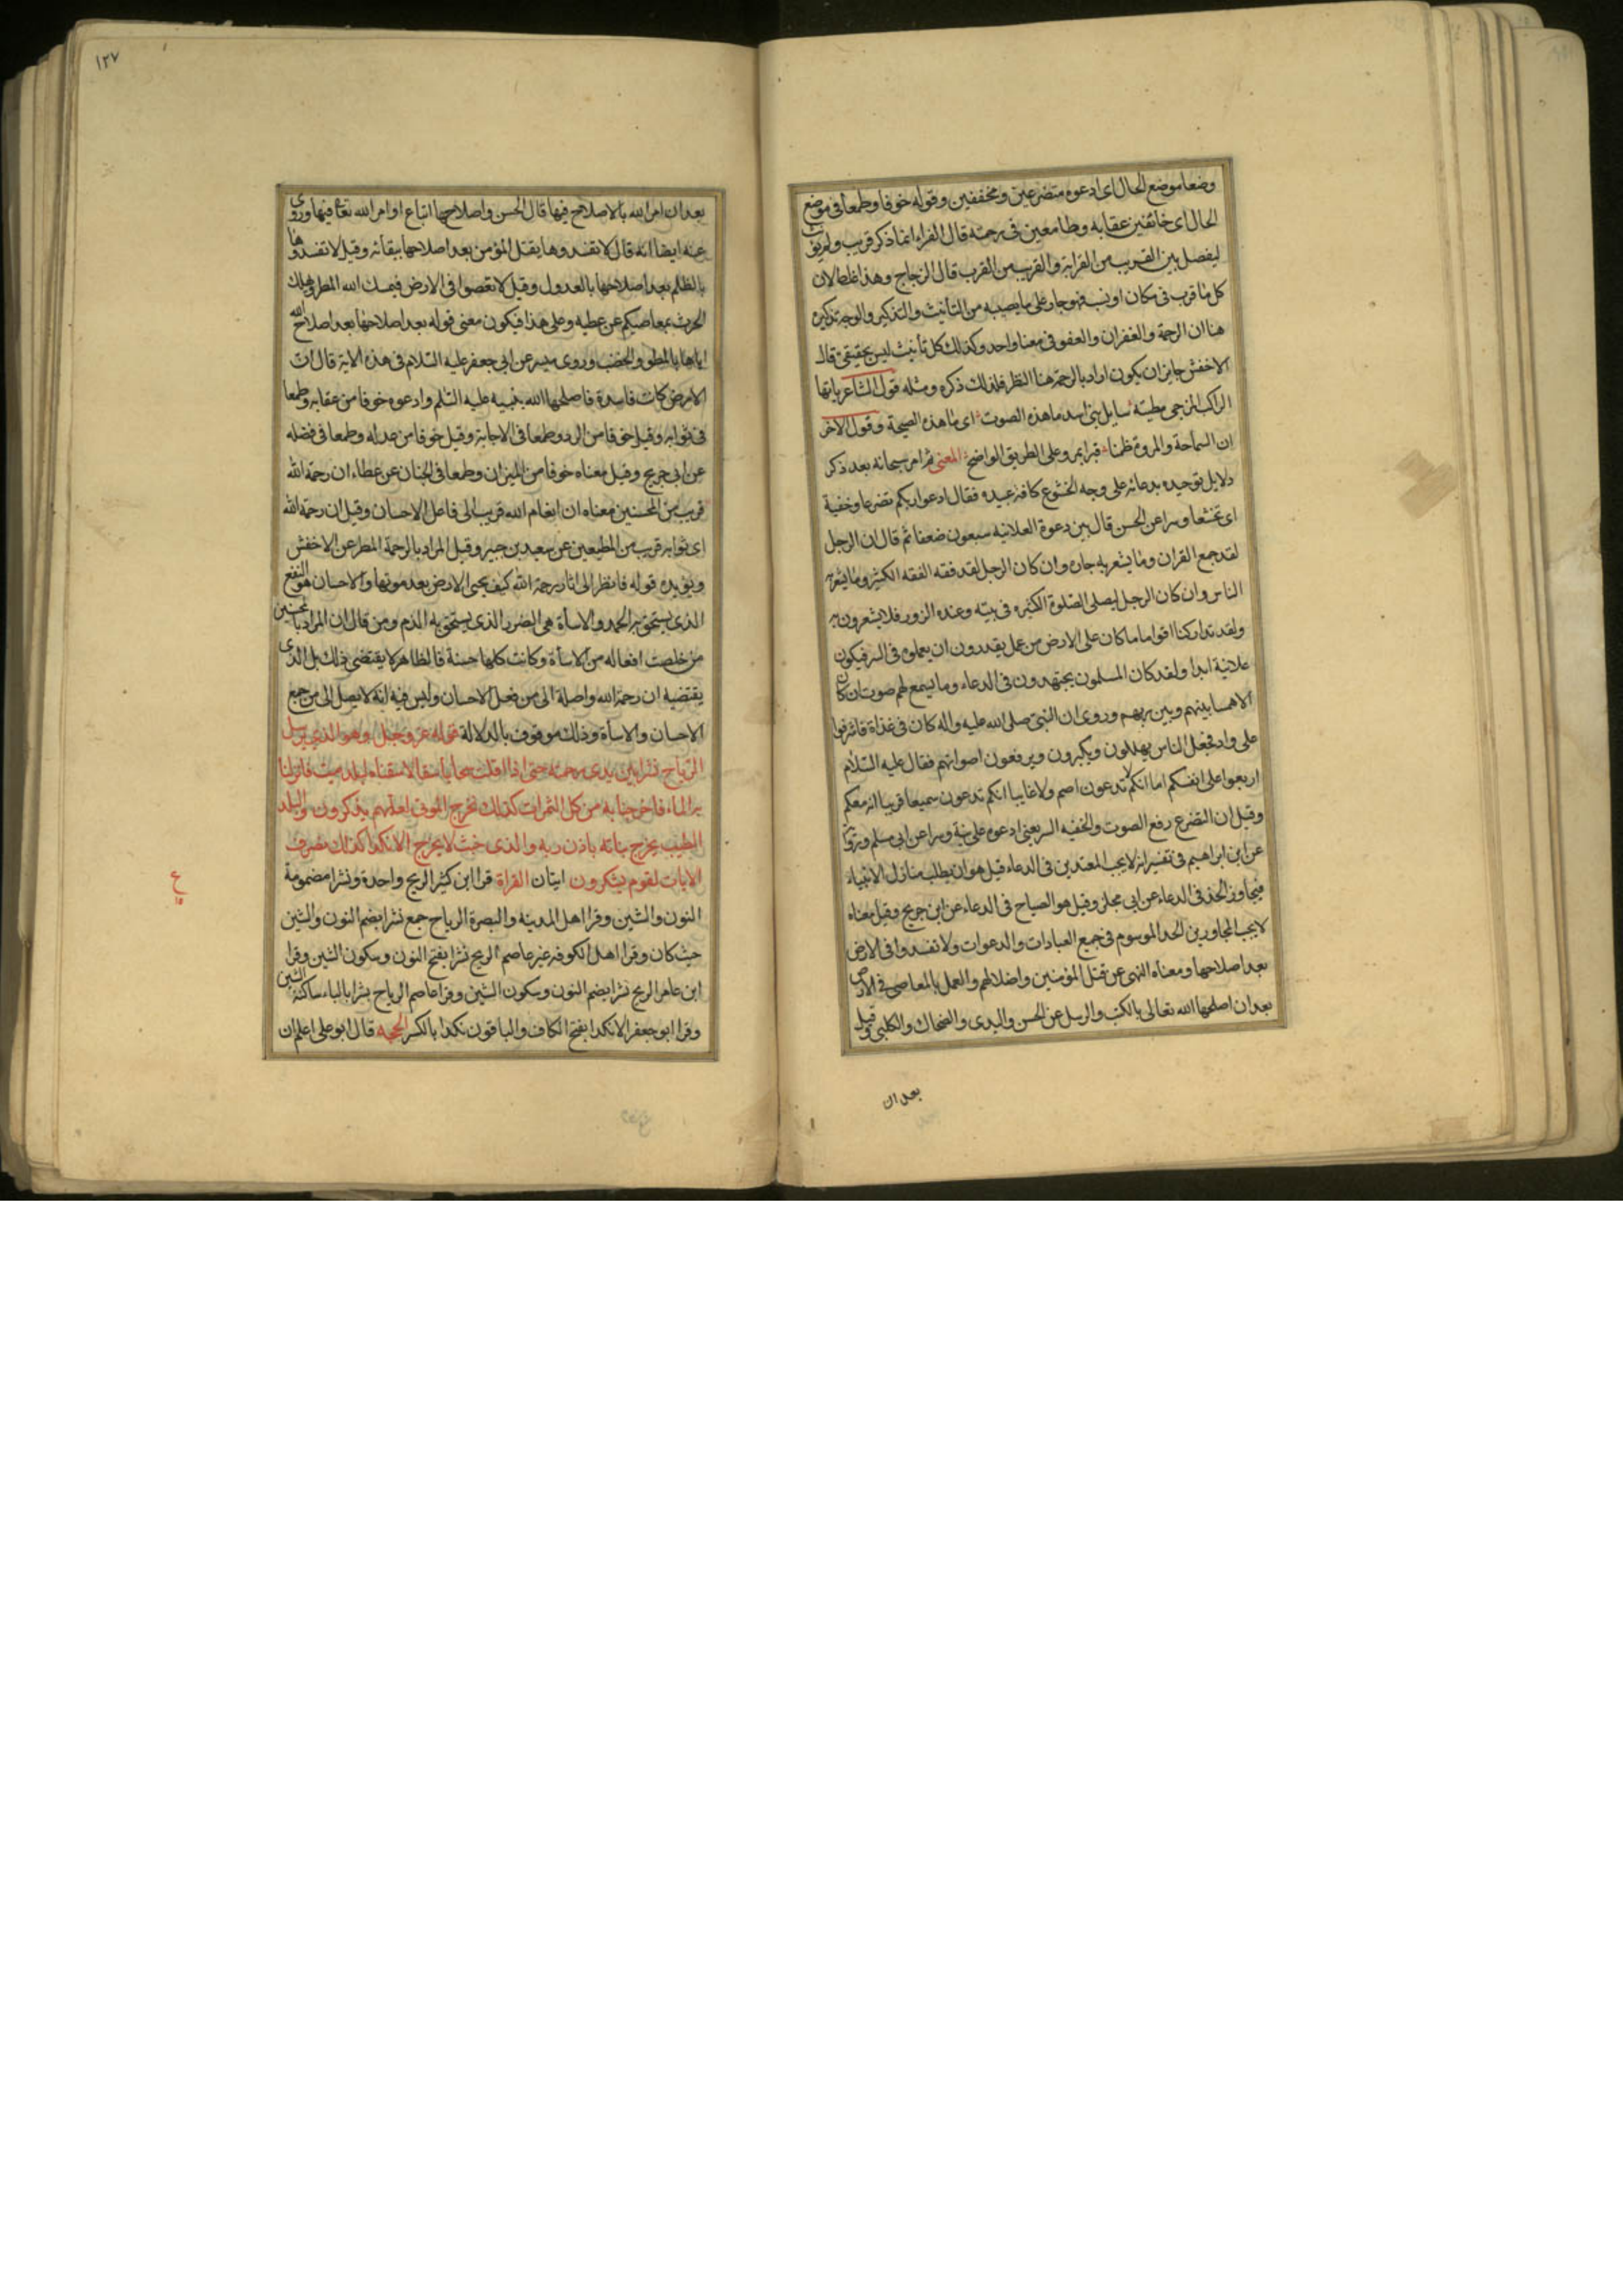 وضعا موضع الحال ای ادعوه متضرعین ومخففین وقوله خوفا وطمعا فی موضع
الحال ای خائفین عقابه وطامعین فی رحمته قال الفراء انما ذکر قریب ولم یؤنث
لیفصل بین القریب من القرابة والقریب من القرب قال الزجاج وهذا غلط لان
کل ما قرب فی مکان او نسب فهو جار علی ما یصیبه من التأنیث والتذکیر والوجه تذکیره
هنا ان الرحمة والغفران والعفو فی معنا واحد وکذلک کل تأنیث لیس بحقیقی قال
الاخفش جایز ان یکون اراد بالرحمة هنا النظر فلذلک ذکره ومثله قول الشاعر یا ایها
الراکب المزجی مطیته سایل بنی اسد ما هذه الصوت ای ما هذه الصیحة وقول الاخر
ان السماحة والمروة ظمنا قبرا بمرو علی الطریق الواضح المعنی ثم امر سبحانه بعد ذکر
دلایل توحیده بدعائه علی وجه الخشوع کافة عبیده فقال ادعوا ربکم تضرعا وخفیة
ای تخشعا وسرا عن الحسن قال بین دعوة العلانیه سبعون ضعفا ثم قال ان الرجل
لقد جمع القران وما یشعر به جاره وان کان الرجل لقد فقه الفقه الکثیر وما یشعر به
الناس وان کان الرجل لیصلی الصلوة الکثیره فی بیته وعنده الزور فلا یشعرون به
ولقد تدارکنا اقواما ما کان علی الارض من عمل یقدرون ان یعملوه فی السر فیکون
علانیة ابدا ولقد کان المسلمون یجتهدون فی الدعاء وما یسمع لهم صوت ان کان
الا همسا بینهم وبین ربهم وروی ان النبی صلی الله علیه واله کان فی غذاة فاشرفوا
علی واد فجعل الناس یهللون ویکبرون ویرفعون اصواتهم فقال علیه السلام
اربعوا علی انفسکم اما انکم لا تدعون اصم ولا غایبا انکم تدعون سمیعا قریبا انه معکم
وقیل ان التضرع رفع الصوت والخفیه السر یعنی ادعوه علانیة وسرا عن ابی مسلم ورواه
عن ابن ابراهیم فی تفسیره انه لا یحب المعتدین فی الدعاء قیل هو ان یطلب منازل الانبیاء
فیجاوز الحد فی الدعاء عن ابی مجلز وقیل هو الصیاح فی الدعاء عن ابن جریج وقیل معناه
لا یحب المجاوزین الحد الموسوم فی جمیع العبادات والدعوات ولا تفسدوا فی الارض
بعد اصلاحها ومعناه النهی عن قتل المؤمنین واضلالهم والعمل بالمعاصی فی الارض
بعد ان اصلحها الله تعالی بالکتب والرسل عن الحسن والسدی والضحاک والکلبی وقیل
بعد ان
۱۲۷
بعد ان امر الله بالاصلاح فیها قال الحسن واصلاحها اتباع اوامر الله تعالی فیها وروی
عنه ایضا انه قال لا تفسدوها بقتل المؤمن بعد اصلاحها ببقائه وقیل لا تفسدوها
بالظلم بعد اصلاحها بالعدول وقیل لا تعصوا فی الارض فیمسک الله المطر ویهلک
الحرث بمعاصیکم عن عطیه وعلی هذا فیکون معنی قوله بعد اصلاحها بعد اصلاح الله
ایاها بالمطر والخضب وروی میسر عن ابی جعفر علیه السلام فی هذه الایة قال ان
الارض کانت فاسدة فاصلحها الله بنبیه علیه السلم وادعوه خوفا من عقابه وطمعا
فی ثوابه وقیل خوفا من الرد وطمعا فی الاجابة وقیل خوفا من عدله وطمعا فی فضله
عن ابی جریج وقیل معناه خوفا من المیزان وطمعا فی الجنان عن عطاء ان رحمة الله
قریب من المحسنین معناه ان انعام الله قریب الی فاعل الاحسان وقیل ان رحمة الله
ای ثوابه قریب من المطیعین عن سعید بن جبیر وقیل المراد بالرحمة المطر عن الاخفش
ویؤیده قوله فانظر الی اثار رحمة الله کیف یحیی الارض بعد موتها والاحسان هو النفع
الذی یستحق به الحمد والاسأة هی الضرر الذی یستحق به الذم ومن قال ان المراد بالمحسنین
من خلصت افعاله من الاسأة وکانت کلها حسنة فالظاهر لا یقتضی ذلک بل الذی
یقتضیه ان رحمة الله واصلة الی من فعل الاحسان ولیس فیه انه لا یصل الی من جمع
الاحسان والاسأة وذلک موقوف بالدلالة قوله عز وجل وهو الذی یرسل
الریاح نشرا بین یدی رحمته حتی اذا اقلت سحابا ثقالا سقناه لبلد میت فانزلنا
به الماء فاخرجنا به من کل الثمرات کذلک نخرج الموتی لعلهم یذکرون والبلد
الطیب یخرج نباته باذن ربه والذی خبث لا یخرج الا نکدا کذلک نصرف
الایات لقوم یشکرون ایتان القراة قرا ابن کثیر الریح واحدة ونشرا مضمومة
النون والشین وقرا اهل المدینه والبصرة الریاح جمع نشرا بضم النون والشین
حیث کان وقرا اهل الکوفه غیر عاصم الریح نشرا بفتح النون وسکون الشین وقرا
ابن عامر الریح نشرا بضم النون وسکون الشین وقرا عاصم الریاح بشرا بالباء ساکنة الشین
وقرا ابو جعفر الا نکدا بفتح الکاف والباقون نکدا بالکسر الحجه قال ابو علی اعلم ان
ع